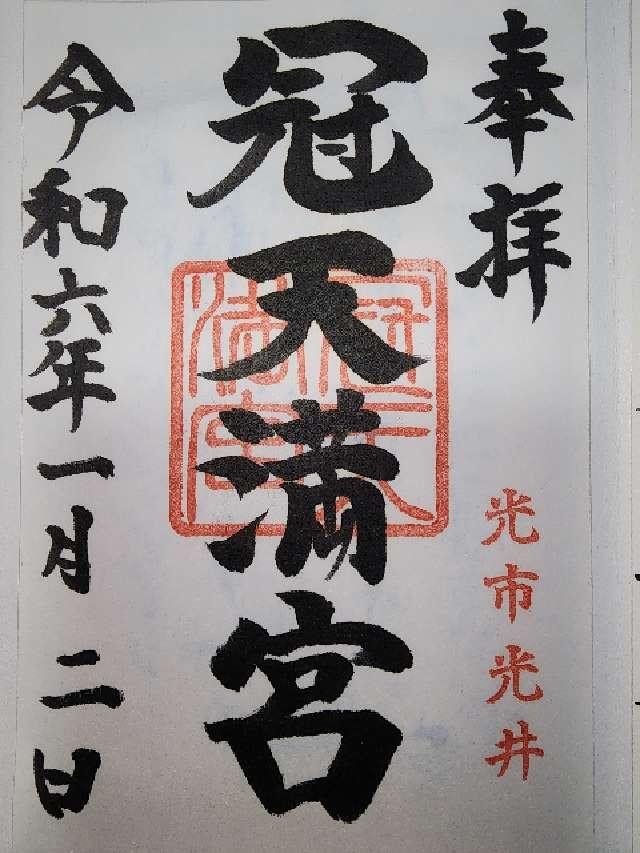 奉拝
光市光井
冠天満宮
冠天満宮
令和六年一月二日